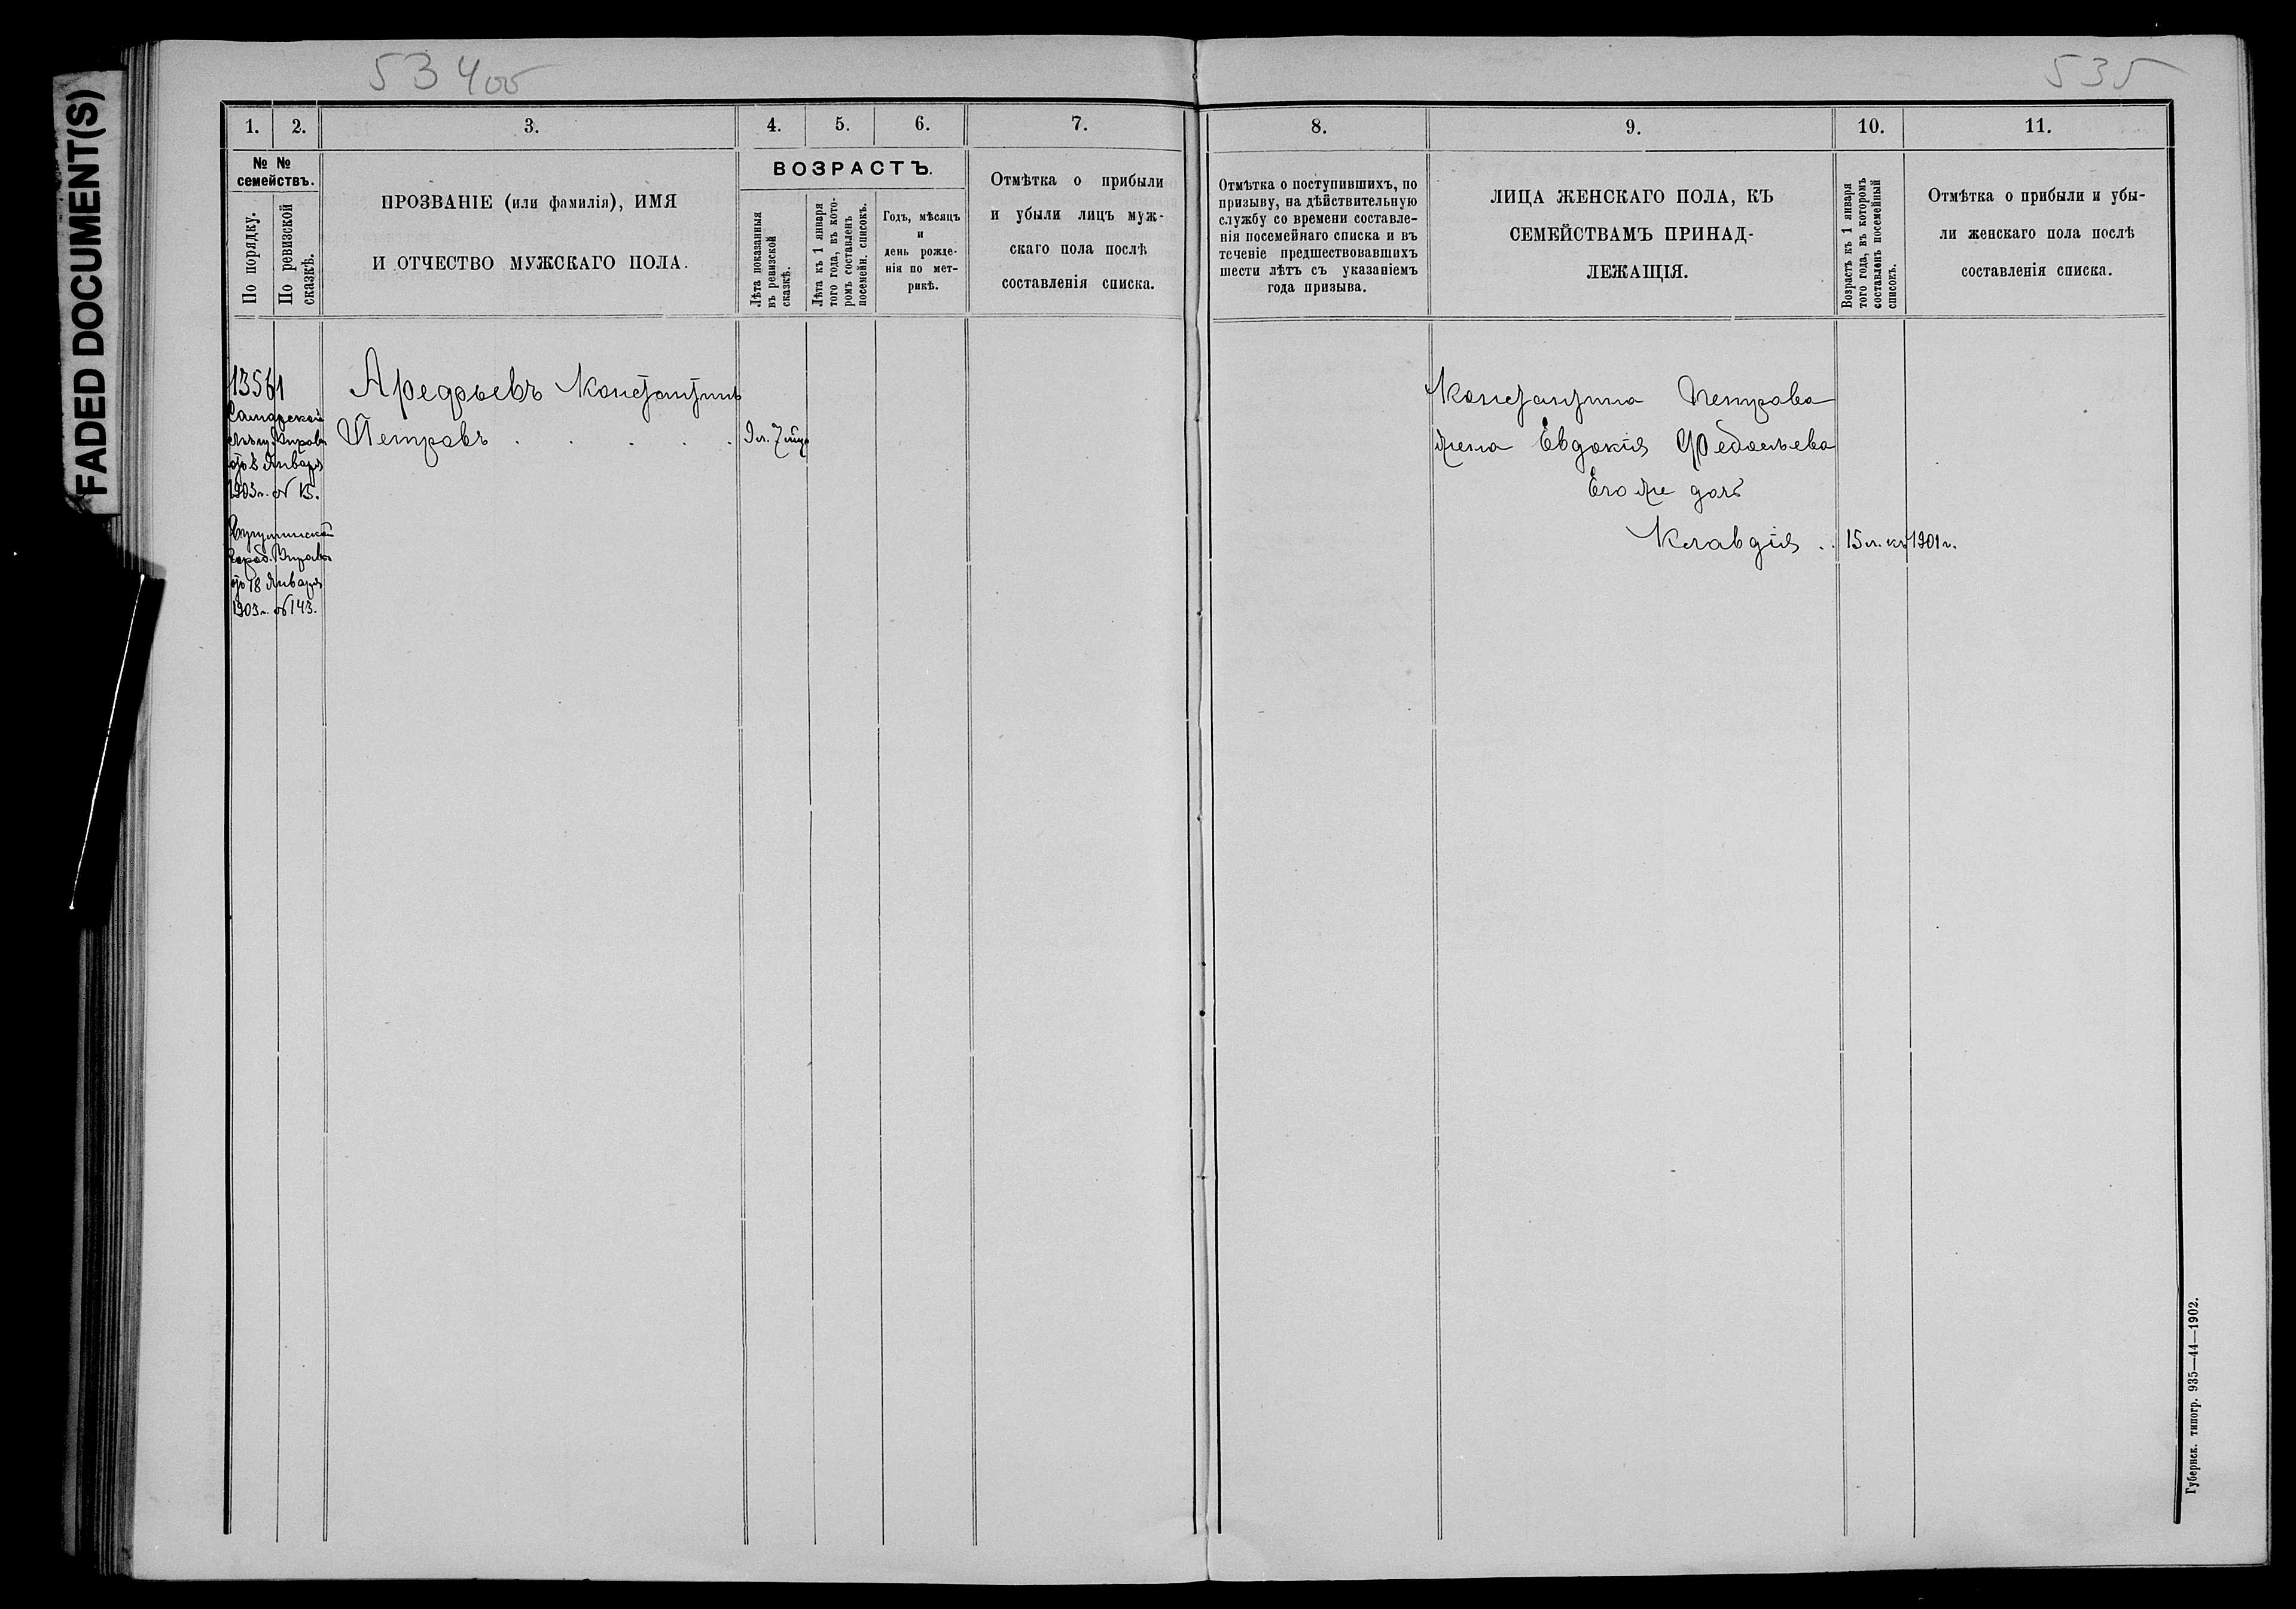 FADED DOCUMENT(S)
534об
535
1. 2. 3. 4. 5. 6. 7.
№ № семействъ.
По порядку.
По ревизской сказкѣ.
ПРОЗВАНІЕ (или фамилія), ИМЯ
И ОТЧЕСТВО МУЖСКАГО ПОЛА.
ВОЗРАСТЪ.
Лѣта показанныя
въ ревизской
сказкѣ.
Лѣта къ 1 января
того года, въ кото-
ромъ составленъ
посемейн. списокъ.
Годъ, мѣсяцъ
и
день рожде-
нія по мет-
рикѣ.
Отмѣтка о прибыли
и убыли лицъ муж-
скаго пола послѣ
составленія списка.
1356
1
Самарской
Управы
отъ 8 Января
1903 г. № 15.
Бугульминской
Город. Управы
отъ 18 Января
1903 г. № 143.
Арефьевъ Константинъ
Петровъ . . . . .
9 л. 7 мцо
8. 9. 10. 11.
Отмѣтка о поступившихъ, по
призыву, на дѣйствительную
службу со времени составле-
нія посемейнаго списка и въ
теченіе предшествовавшихъ
шести лѣтъ съ указаніемъ
года призыва.
ЛИЦА ЖЕНСКАГО ПОЛА, КЪ
СЕМЕЙСТВАМЪ ПРИНАД-
ЛЕЖАЩІЯ.
Возрастъ къ 1 января
того года, въ которомъ
составленъ посемейный
списокъ.
Отмѣтка о прибыли и убы-
ли женскаго пола послѣ
составленія списка.
Константина Петрова
жена Евдокія Федосѣева
Его же дочь
Клавдія . . 15 л. къ 1901 г.
Губернск. типогр. 935—44—1902.